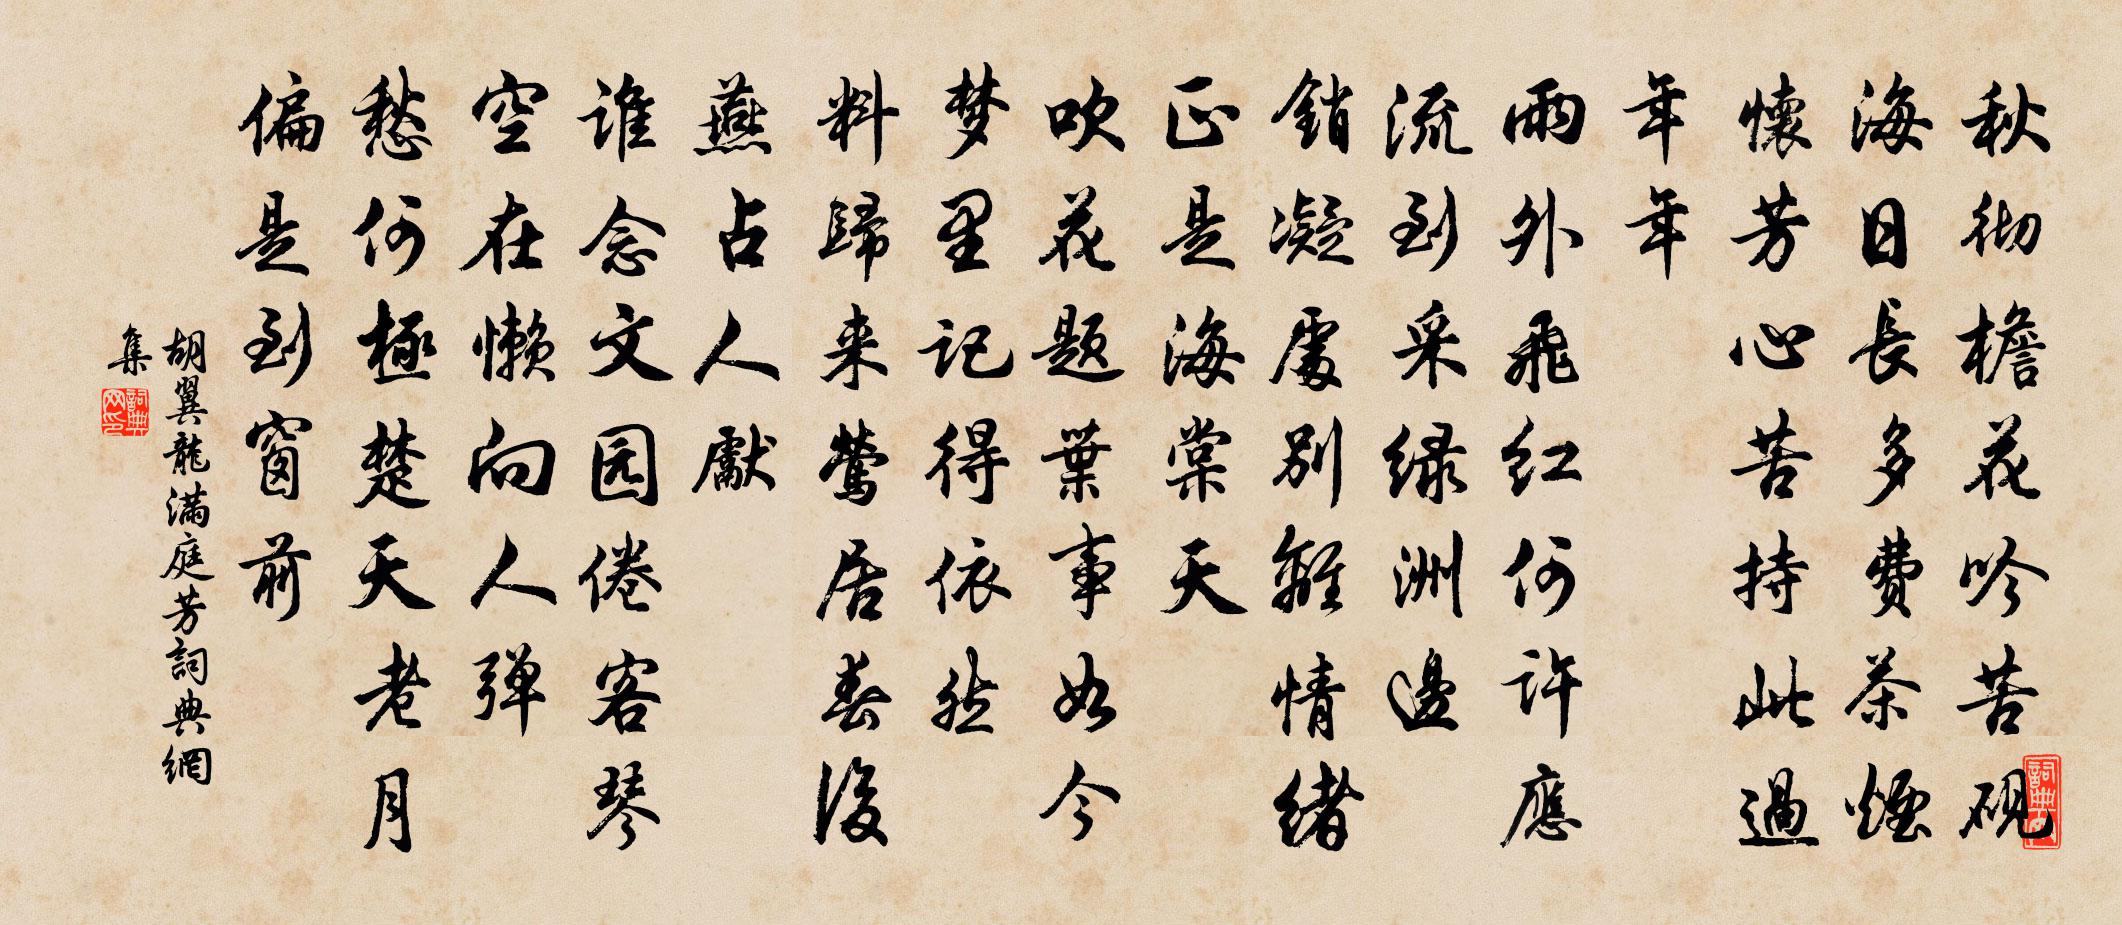 秋彻檐花吟苦砚
海日長多费茶煙
懷芳心苦持此過
年年
雨外飛红何许應
流到采绿洲邊
銷凝處别離情緒
正是海棠天
吹花题葉事如今
梦里记得依然
料歸来鶯居春後
燕占人獻
谁念文园倦客琴
空在懒向人弹
愁何極楚天老月
偏是到窗前
胡翼龍满庭芳詞典網
集
詞典
网印